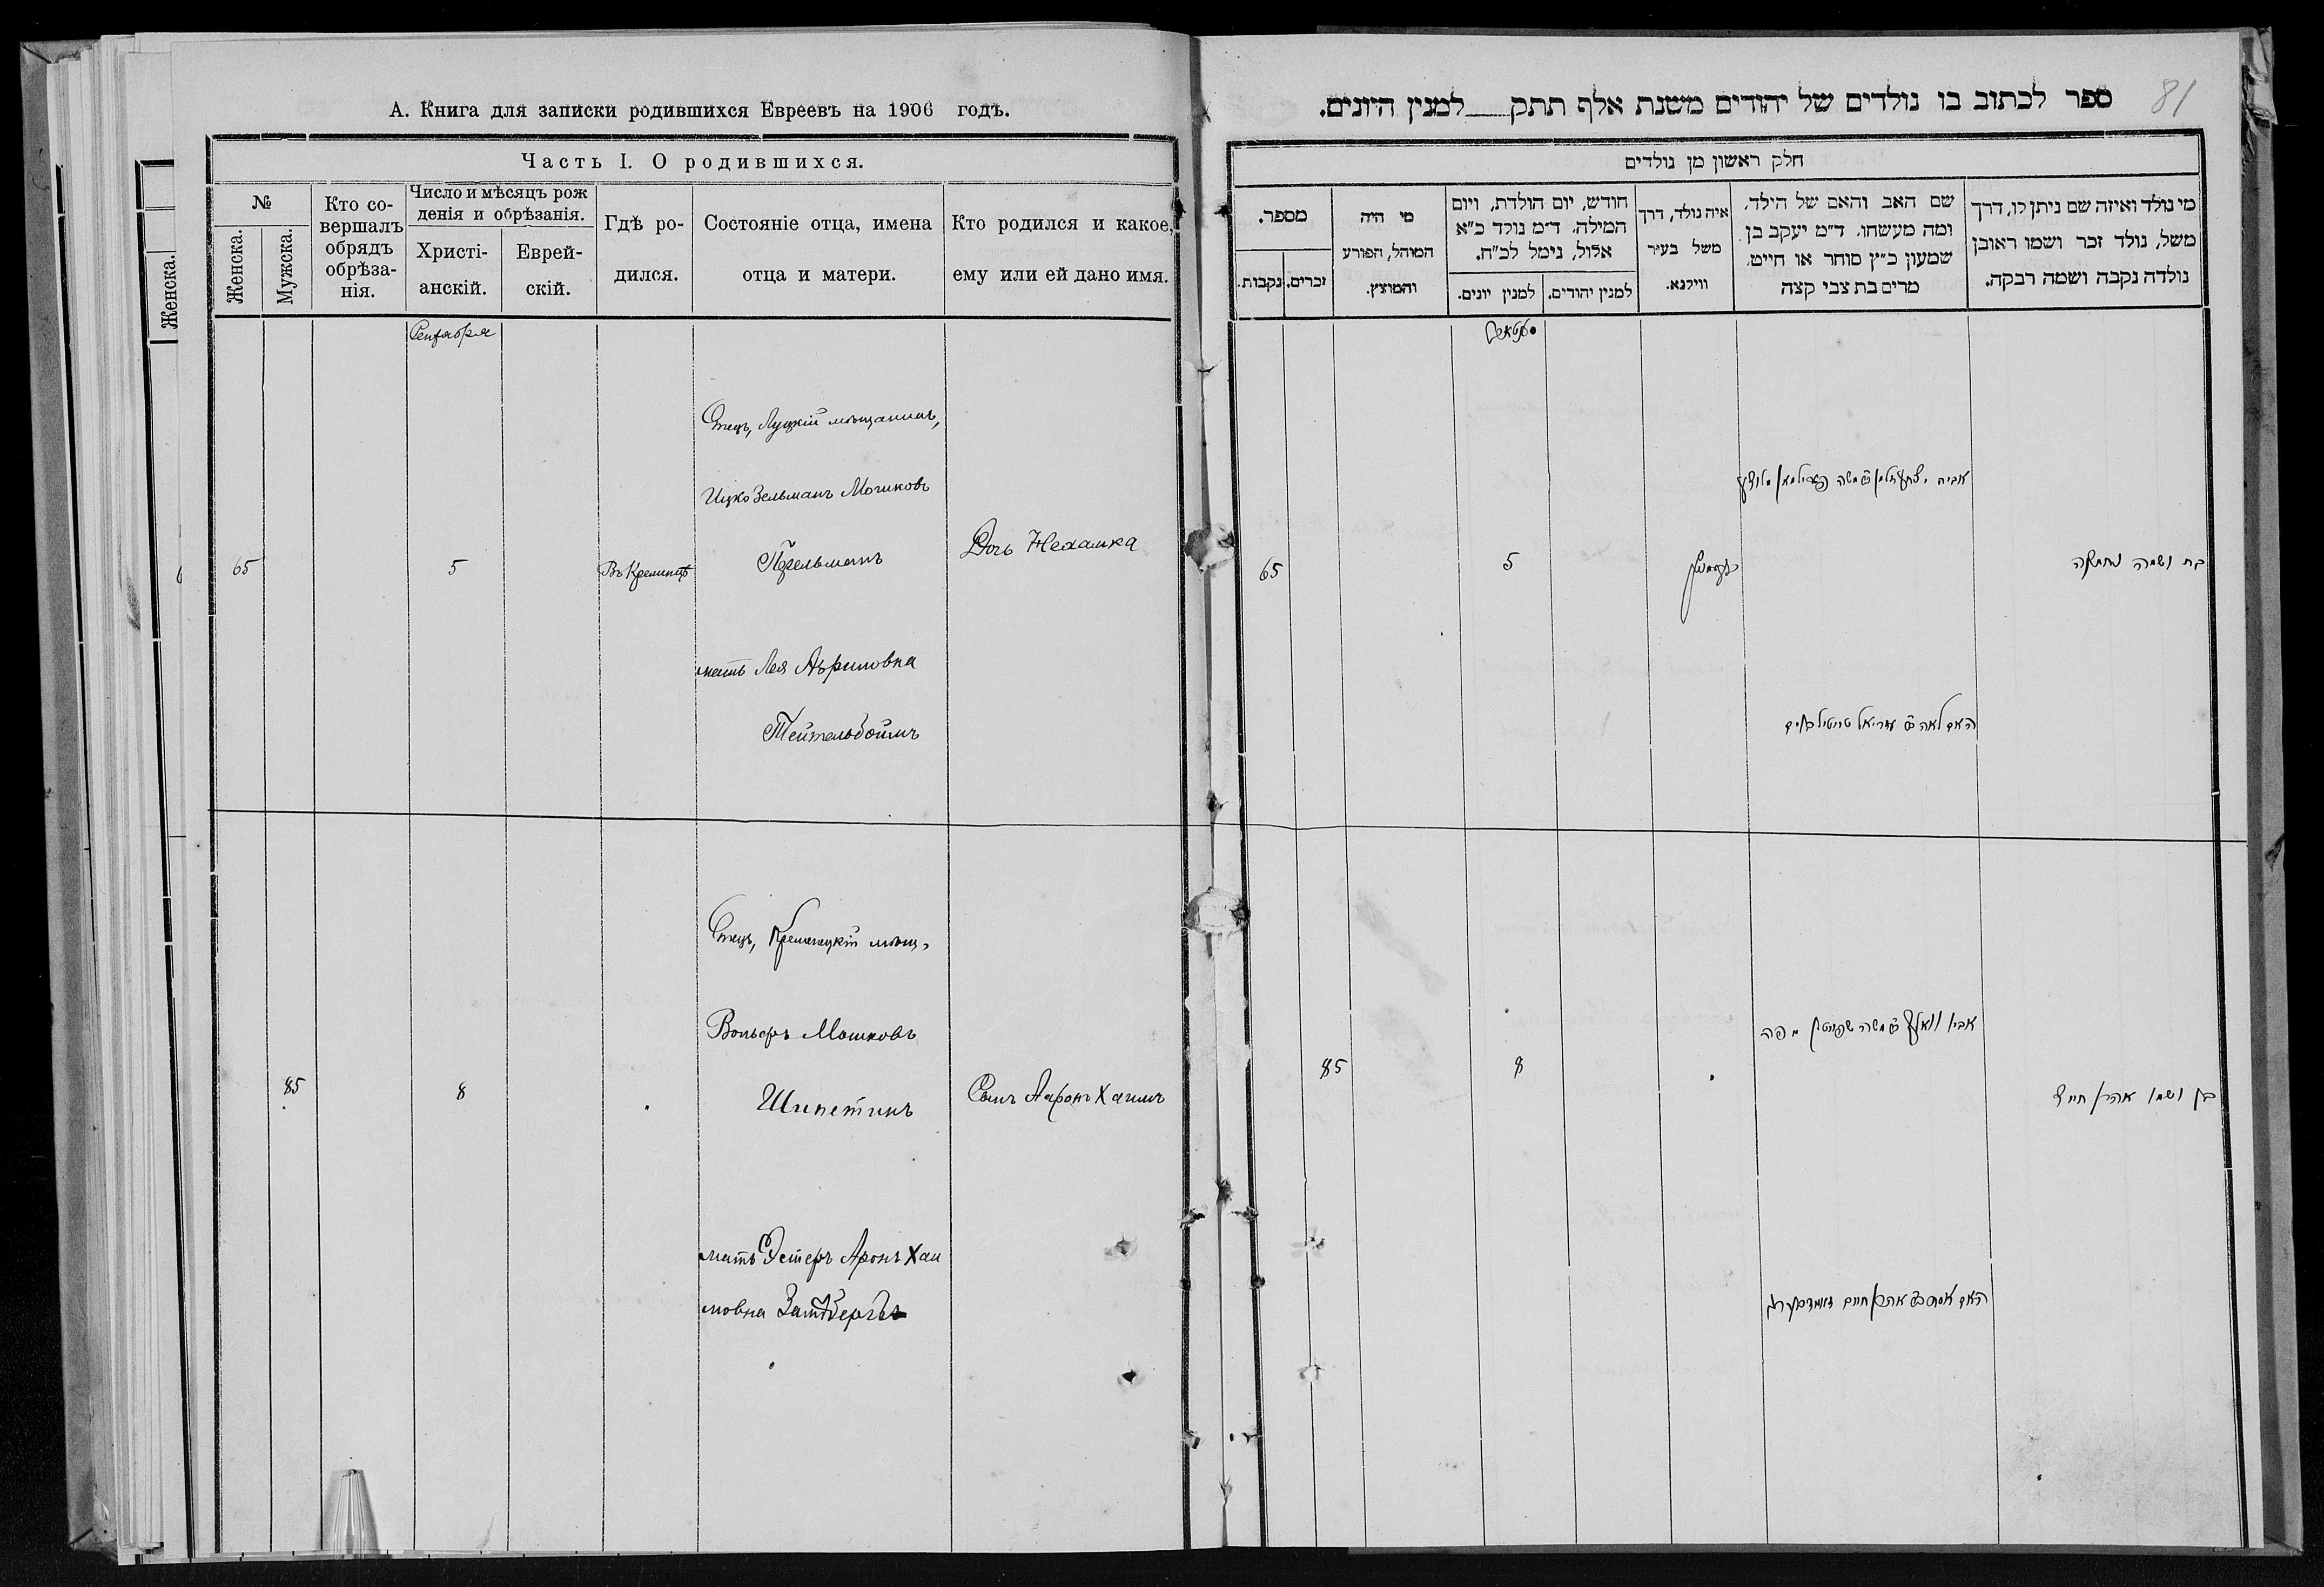 А. Книга для записки родившихся Евреевъ на 1906 годъ.
Часть I. О родившихся.
№
Женска.
Мужска.
Кто со-
вершалъ
обрядъ
обрѣза-
нія.
Число и мѣсяцъ рож
денія и обрѣзанія.
Христі-
анскій.
Еврей-
скій.
Гдѣ ро-
дился.
Состояніе отца, имена
отца и матери.
Кто родился и какое,
ему или ей дано имя.
Женска.
Сентября
Отецъ, Луцкій мѣщанинъ,
Ицко Зельманъ Мошковъ
65
5
Въ Кременцѣ
Перельманъ
Дочь Нехамка
мать Лея Азриловна
Тейтельбоймъ
Отецъ, Кременецкій мѣщ.
Вольфъ Мошковъ
85
8
Шпетинъ
Сынъ Ааронъ Хаимъ
мать Эстеръ Аронъ Хаи
мовна
81
ספר לכתוב בו נולדים של יהודים משנת אלף תתק למנין היונים.
חלק ראשון מן נולדים
מספר.
זכרים.
נקבות.
מי היה
המוהל, הפורע
והמוצץ.
חודש, יום הולדת, ויום
המילה. ד״מ נולד כ״א
אלול, נימל לכ״ח.
למנין יונים.
למנין יהודים.
איה נולד, דרך
משל בעיר
ווילנא.
שם האב והאם של הילד,
ומה מעשהו. ד״מ יעקב בן
שמעון כ״ץ סוחר או חייט,
מרים בת צבי קצה
מי נולד ואיזה שם ניתן לו, דרך
משל, נולד זכר ושמו ראובן
נולדה נקבה ושמה רבקה.
65
5
בת ושמה נחמקה
האם לאה עזריאל טייטילבוים
אביו וואלף משה מפה
85
8
בן ושמו אהרן חיים
האם אסתר אהרן חיים